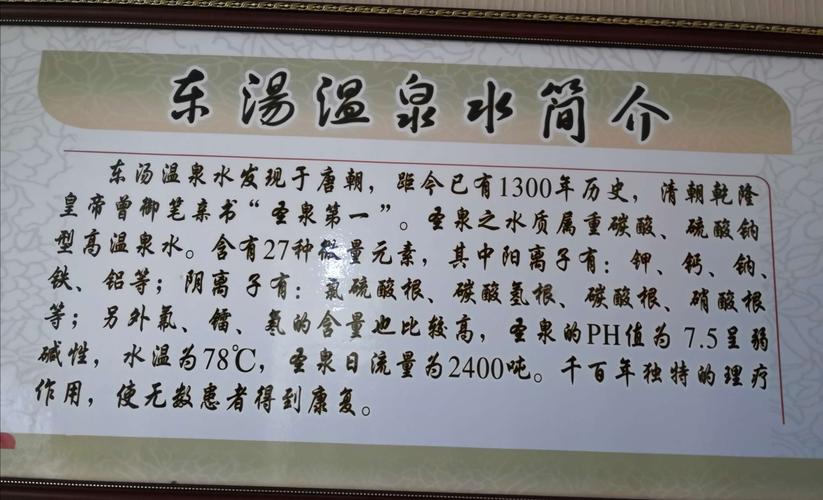 东湯温泉水简介
东汤温泉水发现于唐朝，距今已有1300年历史，清朝乾隆
皇帝曾御笔亲书“圣泉第一”。圣泉之水质属重碳酸、硫酸钠
型高温泉水。含有27种微量元素，其中阳离子有：钾、钙、钠、
铁、铝等；阴离子有：氯硫酸根、碳酸氢根、碳酸根、硝酸根
等；另外氟、镭、氡的含量也比较高，圣泉的PH值为7.5呈弱
碱性，水温为78℃，圣泉日流量为2400吨。千百年独特的理疗
作用，使无数患者得到康复。